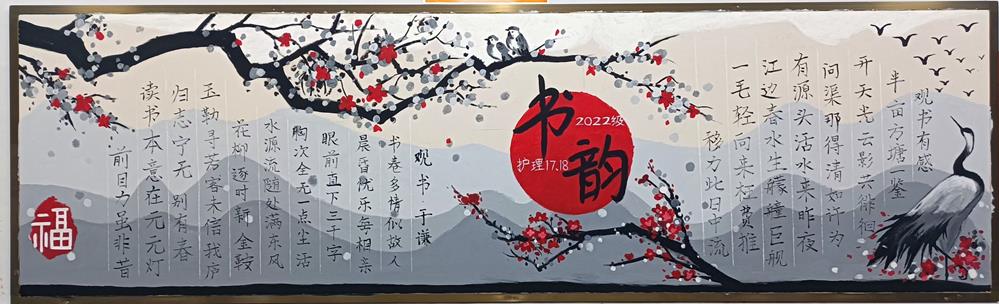 观书有感
半亩方塘一鉴
开天光云影共徘徊
问渠那得清如许为
有源头活水来昨夜
江边春水生艨艟巨舰
一毛轻向来枉费推
移力此日中流
书韵
2022级
护理17.18
观书 于谦
书卷多情似故人
晨昏忧乐每相亲
眼前直下三千字
胸次全无一点尘活
水源流随处满东风
花柳逐时新金鞍
玉勒寻芳客未信我庐
归志宁无别有春
读书本意在元元灯
前目力虽非昔
福